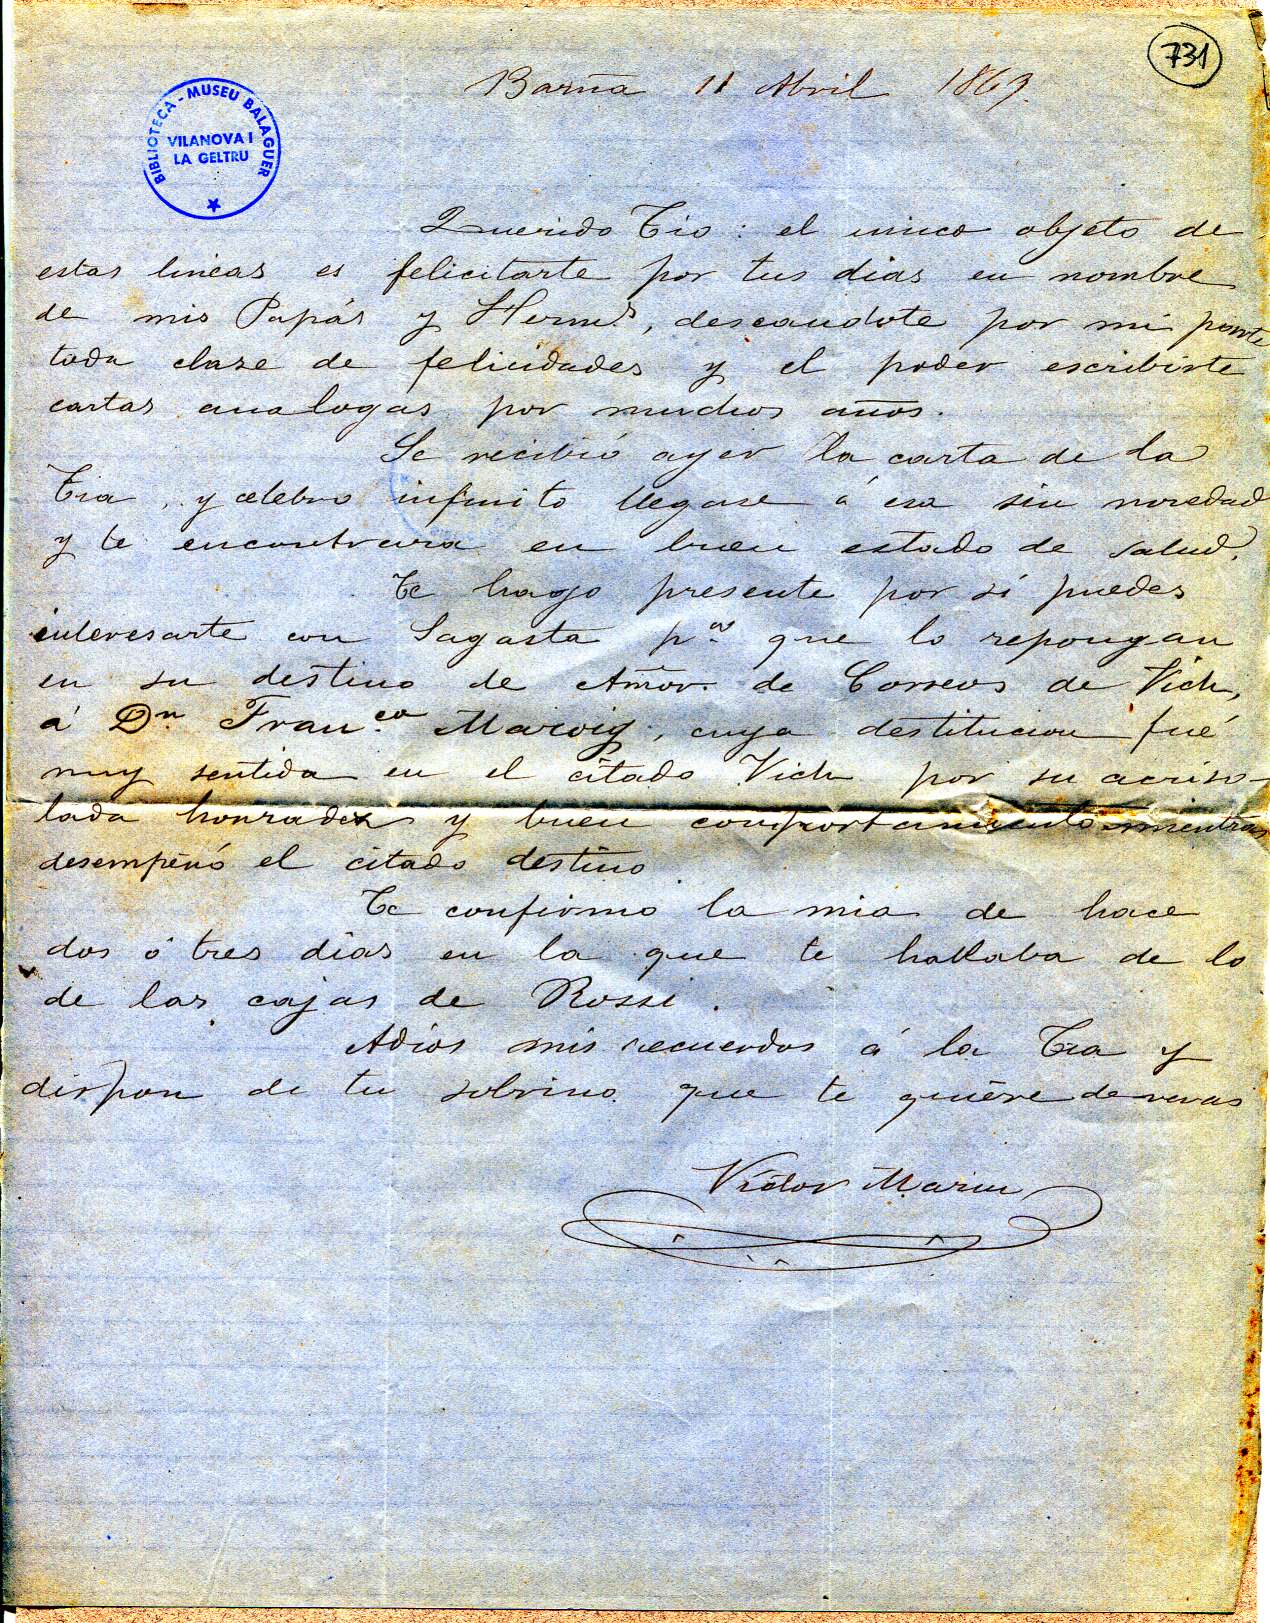 731
Barña 11 Abril 1869.
BIBLIOTECA - MUSEU BALAGUER
VILANOVA I
LA GELTRU
Querido Tio: el unico objeto de
estas lineas es felicitarte por tus dias en nombre
de mis Papás y Herms, deseandote por mi parte
toda clase de felicidades y el poder escribirte
cartas analogas por muchos años.
Se recibió ayer la carta de la
Tia, y celebro infinito llegase á esa sin novedad
y te encontrara en buen estado de salud.
Te hago presente por si puedes
interesarte con Sagasta pa que lo repongan
en su destino de Amor. de Correos de Vich,
á Dn Franco Maroig, cuya destitucion fué
muy sentida en el citado Vich por su acriso-
lada honradez y buen comportamiento mientras
desempeñó el citado destino.
Te confirmo la mia de hace
dos ó tres dias en la que te hablaba de lo
de las cajas de Rossi.
Adios mis recuerdos á la Tia y
dispon de tu sobrino que te quiere de veras
Victor Marin